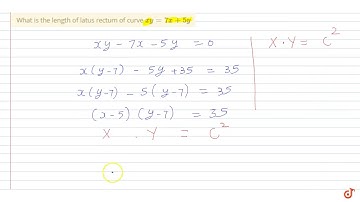 What is the length of latus rectum of curve xy = 7x + 5y
xy - 7x - 5y = 0
X · Y = C²
x(y-7) - 5y + 35 = 35
x(y-7) - 5(y-7) = 35
(x-5)(y-7) = 35
X . Y = C²